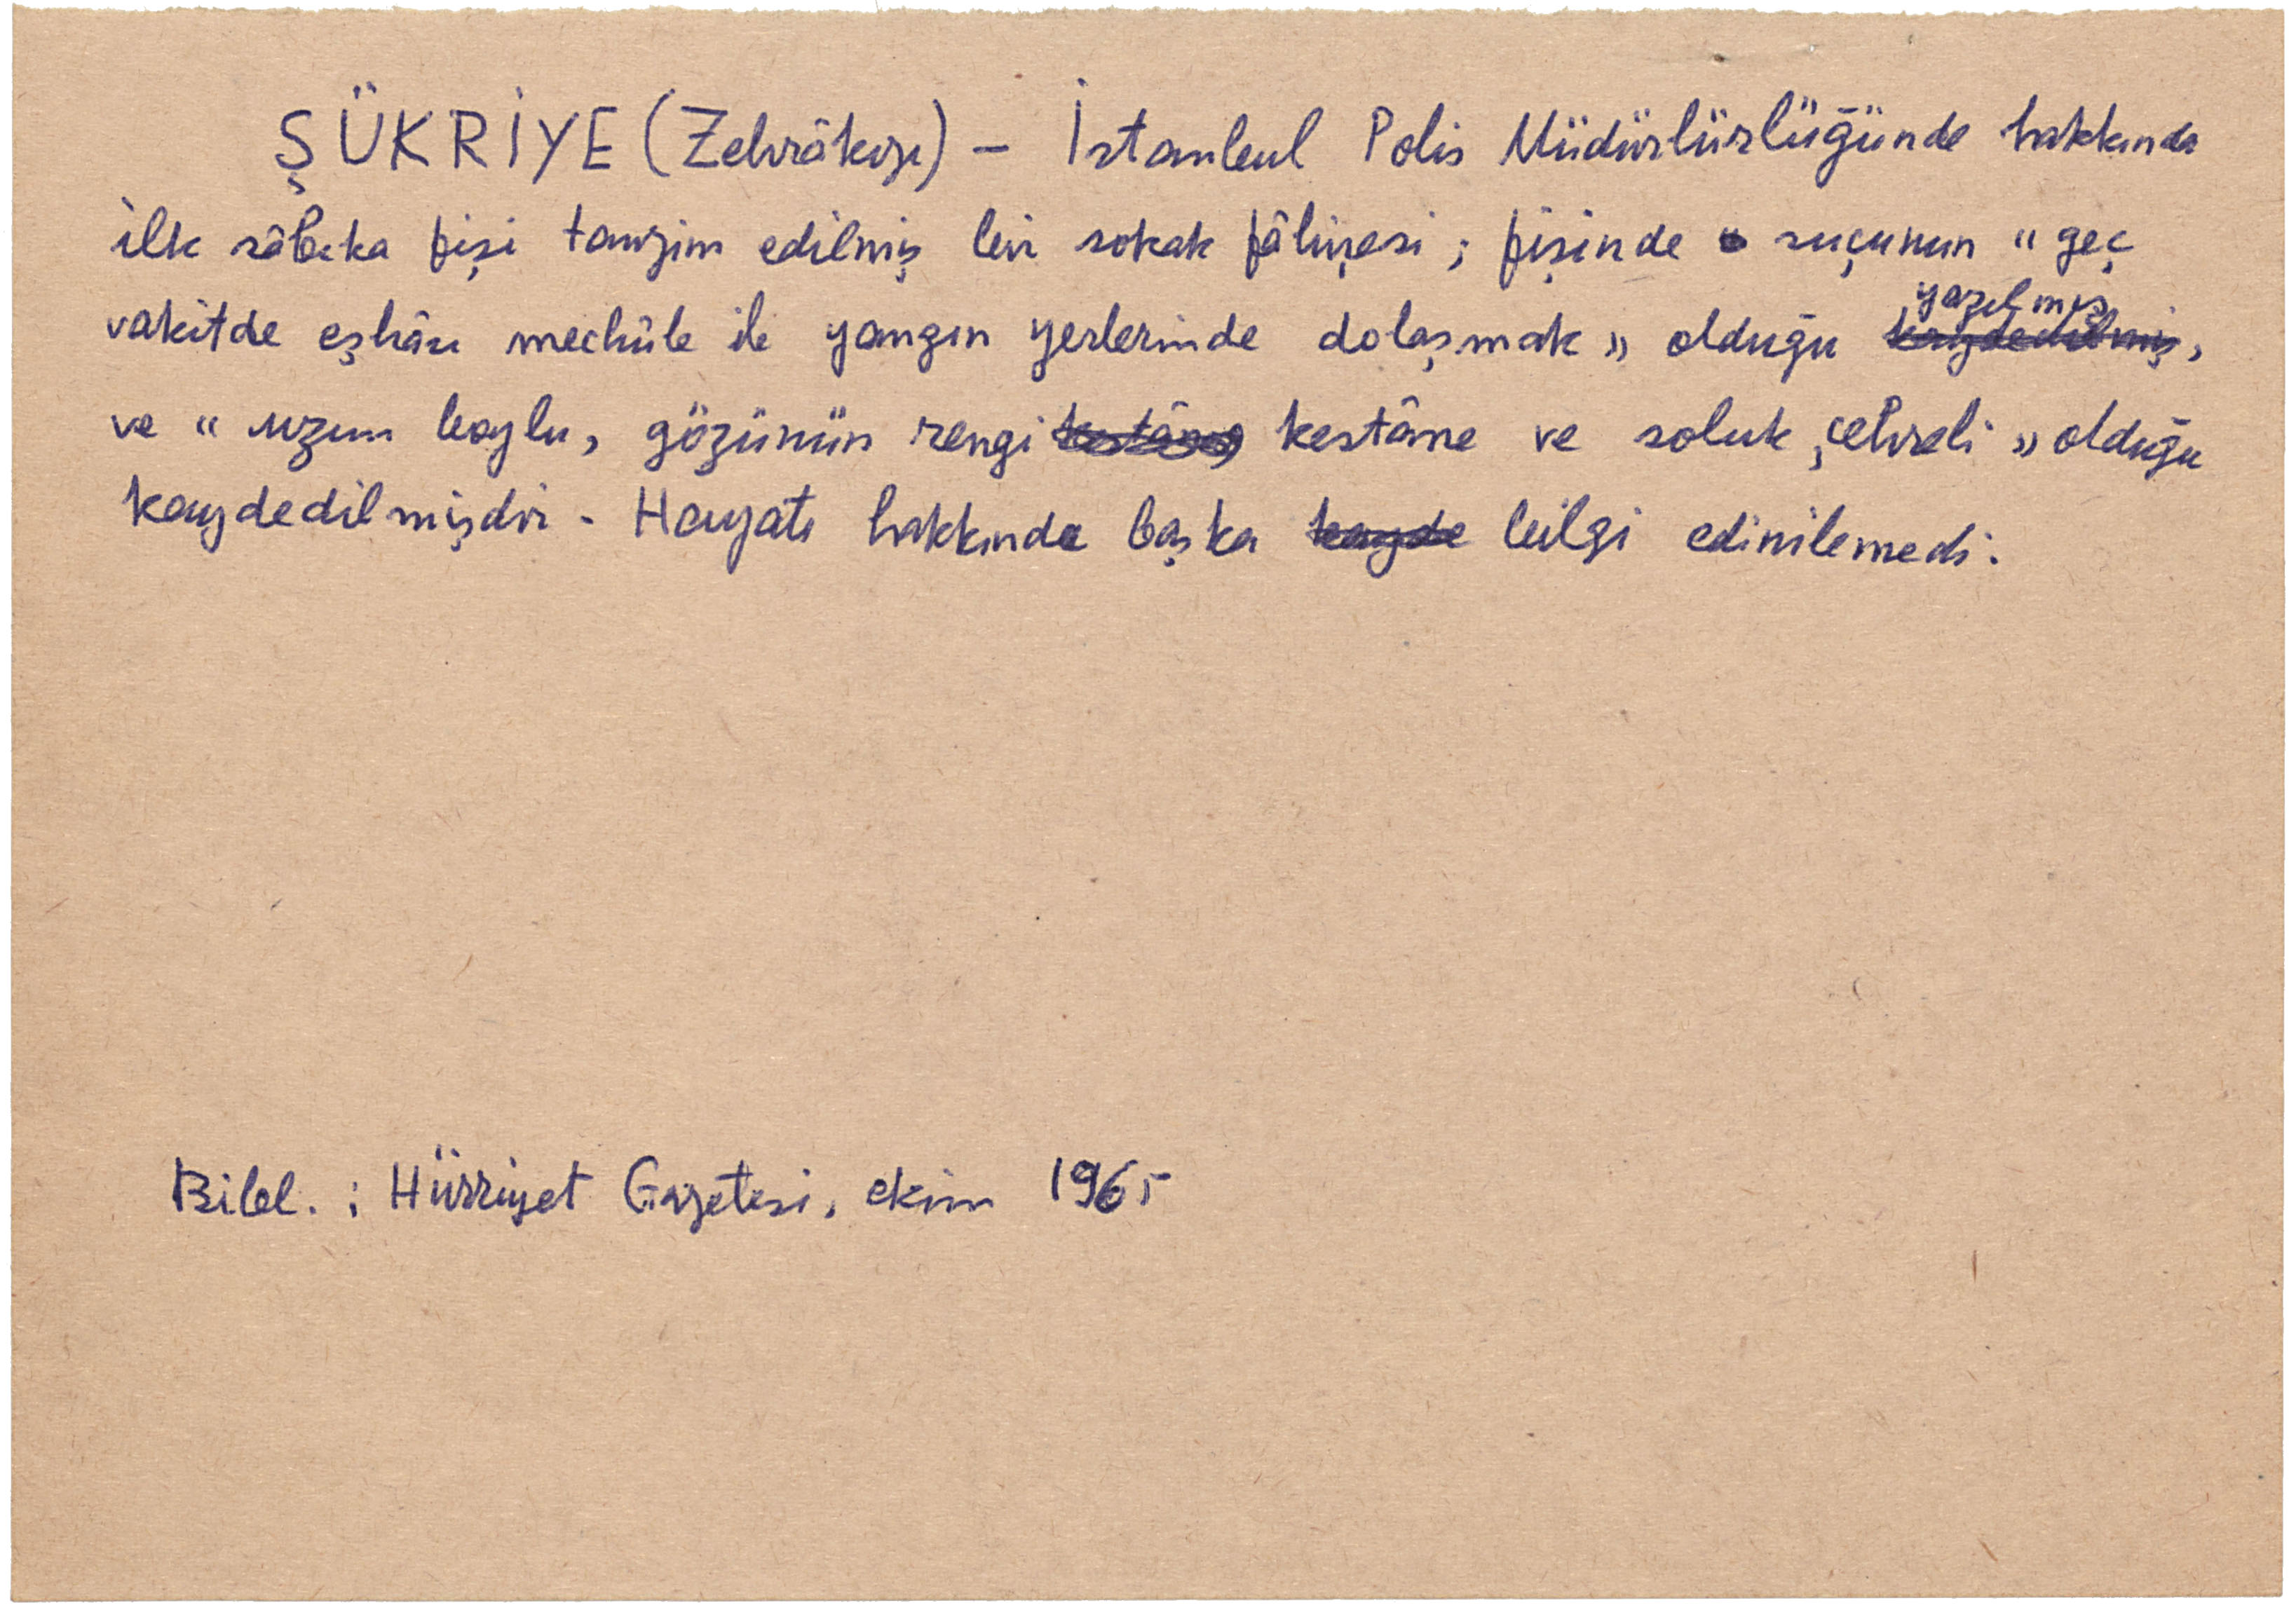 ŞÜKRİYE (Zehrâkızı) — İstanbul Polis Müdürlürlüğünde hakkında
ilk sâbıka fişi tanzim edilmiş bir sokak fâhişesi; fişinde suçunun "geç
vakitde eşhâsı mechûle ile yangın yerlerinde dolaşmak" olduğu yazılmış,
ve "uzun boylu, gözünün rengi kestâne ve soluk çehreli" olduğu
kaydedilmişdir. Hayatı hakkında başka bilgi edinilemedi.
Bibl. : Hürriyet Gazetesi, ekim 1965